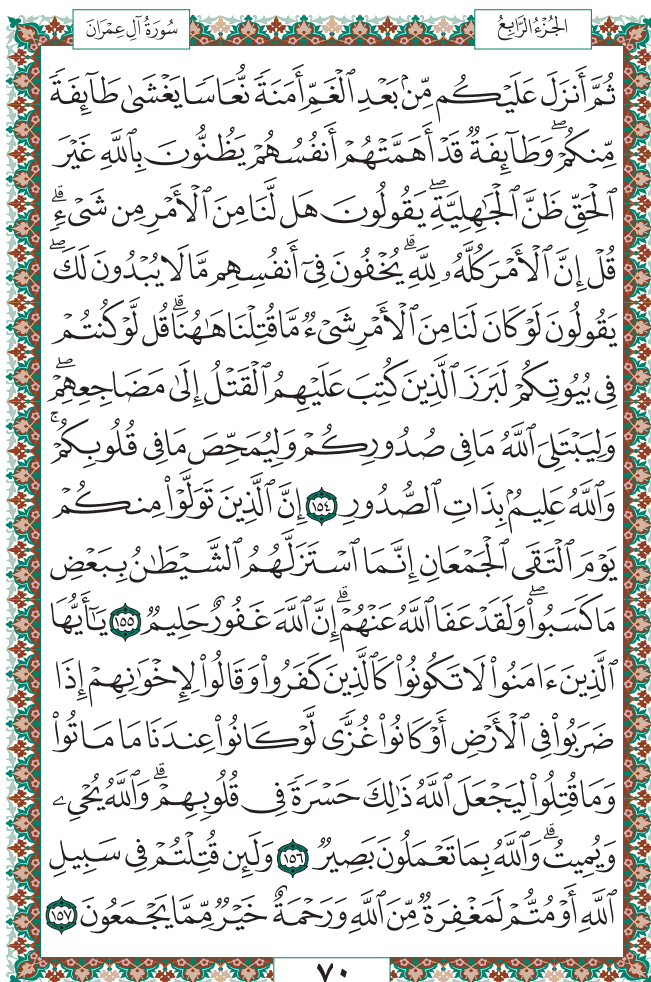 الجُزْءُ الرَّابِعُ
سُورَةُ آلِ عِمْرَان
ثُمَّ أَنزَلَ عَلَيْكُم مِّنۢ بَعْدِ ٱلْغَمِّ أَمَنَةً نُّعَاسًا يَغْشَىٰ طَآئِفَةً
مِّنكُمْ ۖ وَطَآئِفَةٌ قَدْ أَهَمَّتْهُمْ أَنفُسُهُمْ يَظُنُّونَ بِٱللَّهِ غَيْرَ
ٱلْحَقِّ ظَنَّ ٱلْجَٰهِلِيَّةِ ۖ يَقُولُونَ هَل لَّنَا مِنَ ٱلْأَمْرِ مِن شَىْءٍ ۗ
قُلْ إِنَّ ٱلْأَمْرَ كُلَّهُۥ لِلَّهِ ۗ يُخْفُونَ فِىٓ أَنفُسِهِم مَّا لَا يُبْدُونَ لَكَ ۖ
يَقُولُونَ لَوْ كَانَ لَنَا مِنَ ٱلْأَمْرِ شَىْءٌ مَّا قُتِلْنَا هَٰهُنَا ۗ قُل لَّوْ كُنتُمْ
فِى بُيُوتِكُمْ لَبَرَزَ ٱلَّذِينَ كُتِبَ عَلَيْهِمُ ٱلْقَتْلُ إِلَىٰ مَضَاجِعِهِمْ ۖ
وَلِيَبْتَلِىَ ٱللَّهُ مَا فِى صُدُورِكُمْ وَلِيُمَحِّصَ مَا فِى قُلُوبِكُمْ ۗ
وَٱللَّهُ عَلِيمٌۢ بِذَاتِ ٱلصُّدُورِ ١٥٤ إِنَّ ٱلَّذِينَ تَوَلَّوْا۟ مِنكُمْ
يَوْمَ ٱلْتَقَى ٱلْجَمْعَانِ إِنَّمَا ٱسْتَزَلَّهُمُ ٱلشَّيْطَٰنُ بِبَعْضِ
مَا كَسَبُوا۟ ۖ وَلَقَدْ عَفَا ٱللَّهُ عَنْهُمْ ۗ إِنَّ ٱللَّهَ غَفُورٌ حَلِيمٌ ١٥٥ يَٰٓأَيُّهَا
ٱلَّذِينَ ءَامَنُوا۟ لَا تَكُونُوا۟ كَٱلَّذِينَ كَفَرُوا۟ وَقَالُوا۟ لِإِخْوَٰنِهِمْ إِذَا
ضَرَبُوا۟ فِى ٱلْأَرْضِ أَوْ كَانُوا۟ غُزًّى لَّوْ كَانُوا۟ عِندَنَا مَا مَاتُوا۟
وَمَا قُتِلُوا۟ لِيَجْعَلَ ٱللَّهُ ذَٰلِكَ حَسْرَةً فِى قُلُوبِهِمْ ۗ وَٱللَّهُ يُحْىِۦ
وَيُمِيتُ ۗ وَٱللَّهُ بِمَا تَعْمَلُونَ بَصِيرٌ ١٥٦ وَلَئِن قُتِلْتُمْ فِى سَبِيلِ
ٱللَّهِ أَوْ مُتُّمْ لَمَغْفِرَةٌ مِّنَ ٱللَّهِ وَرَحْمَةٌ خَيْرٌ مِّمَّا يَجْمَعُونَ ١٥٧
٧٠